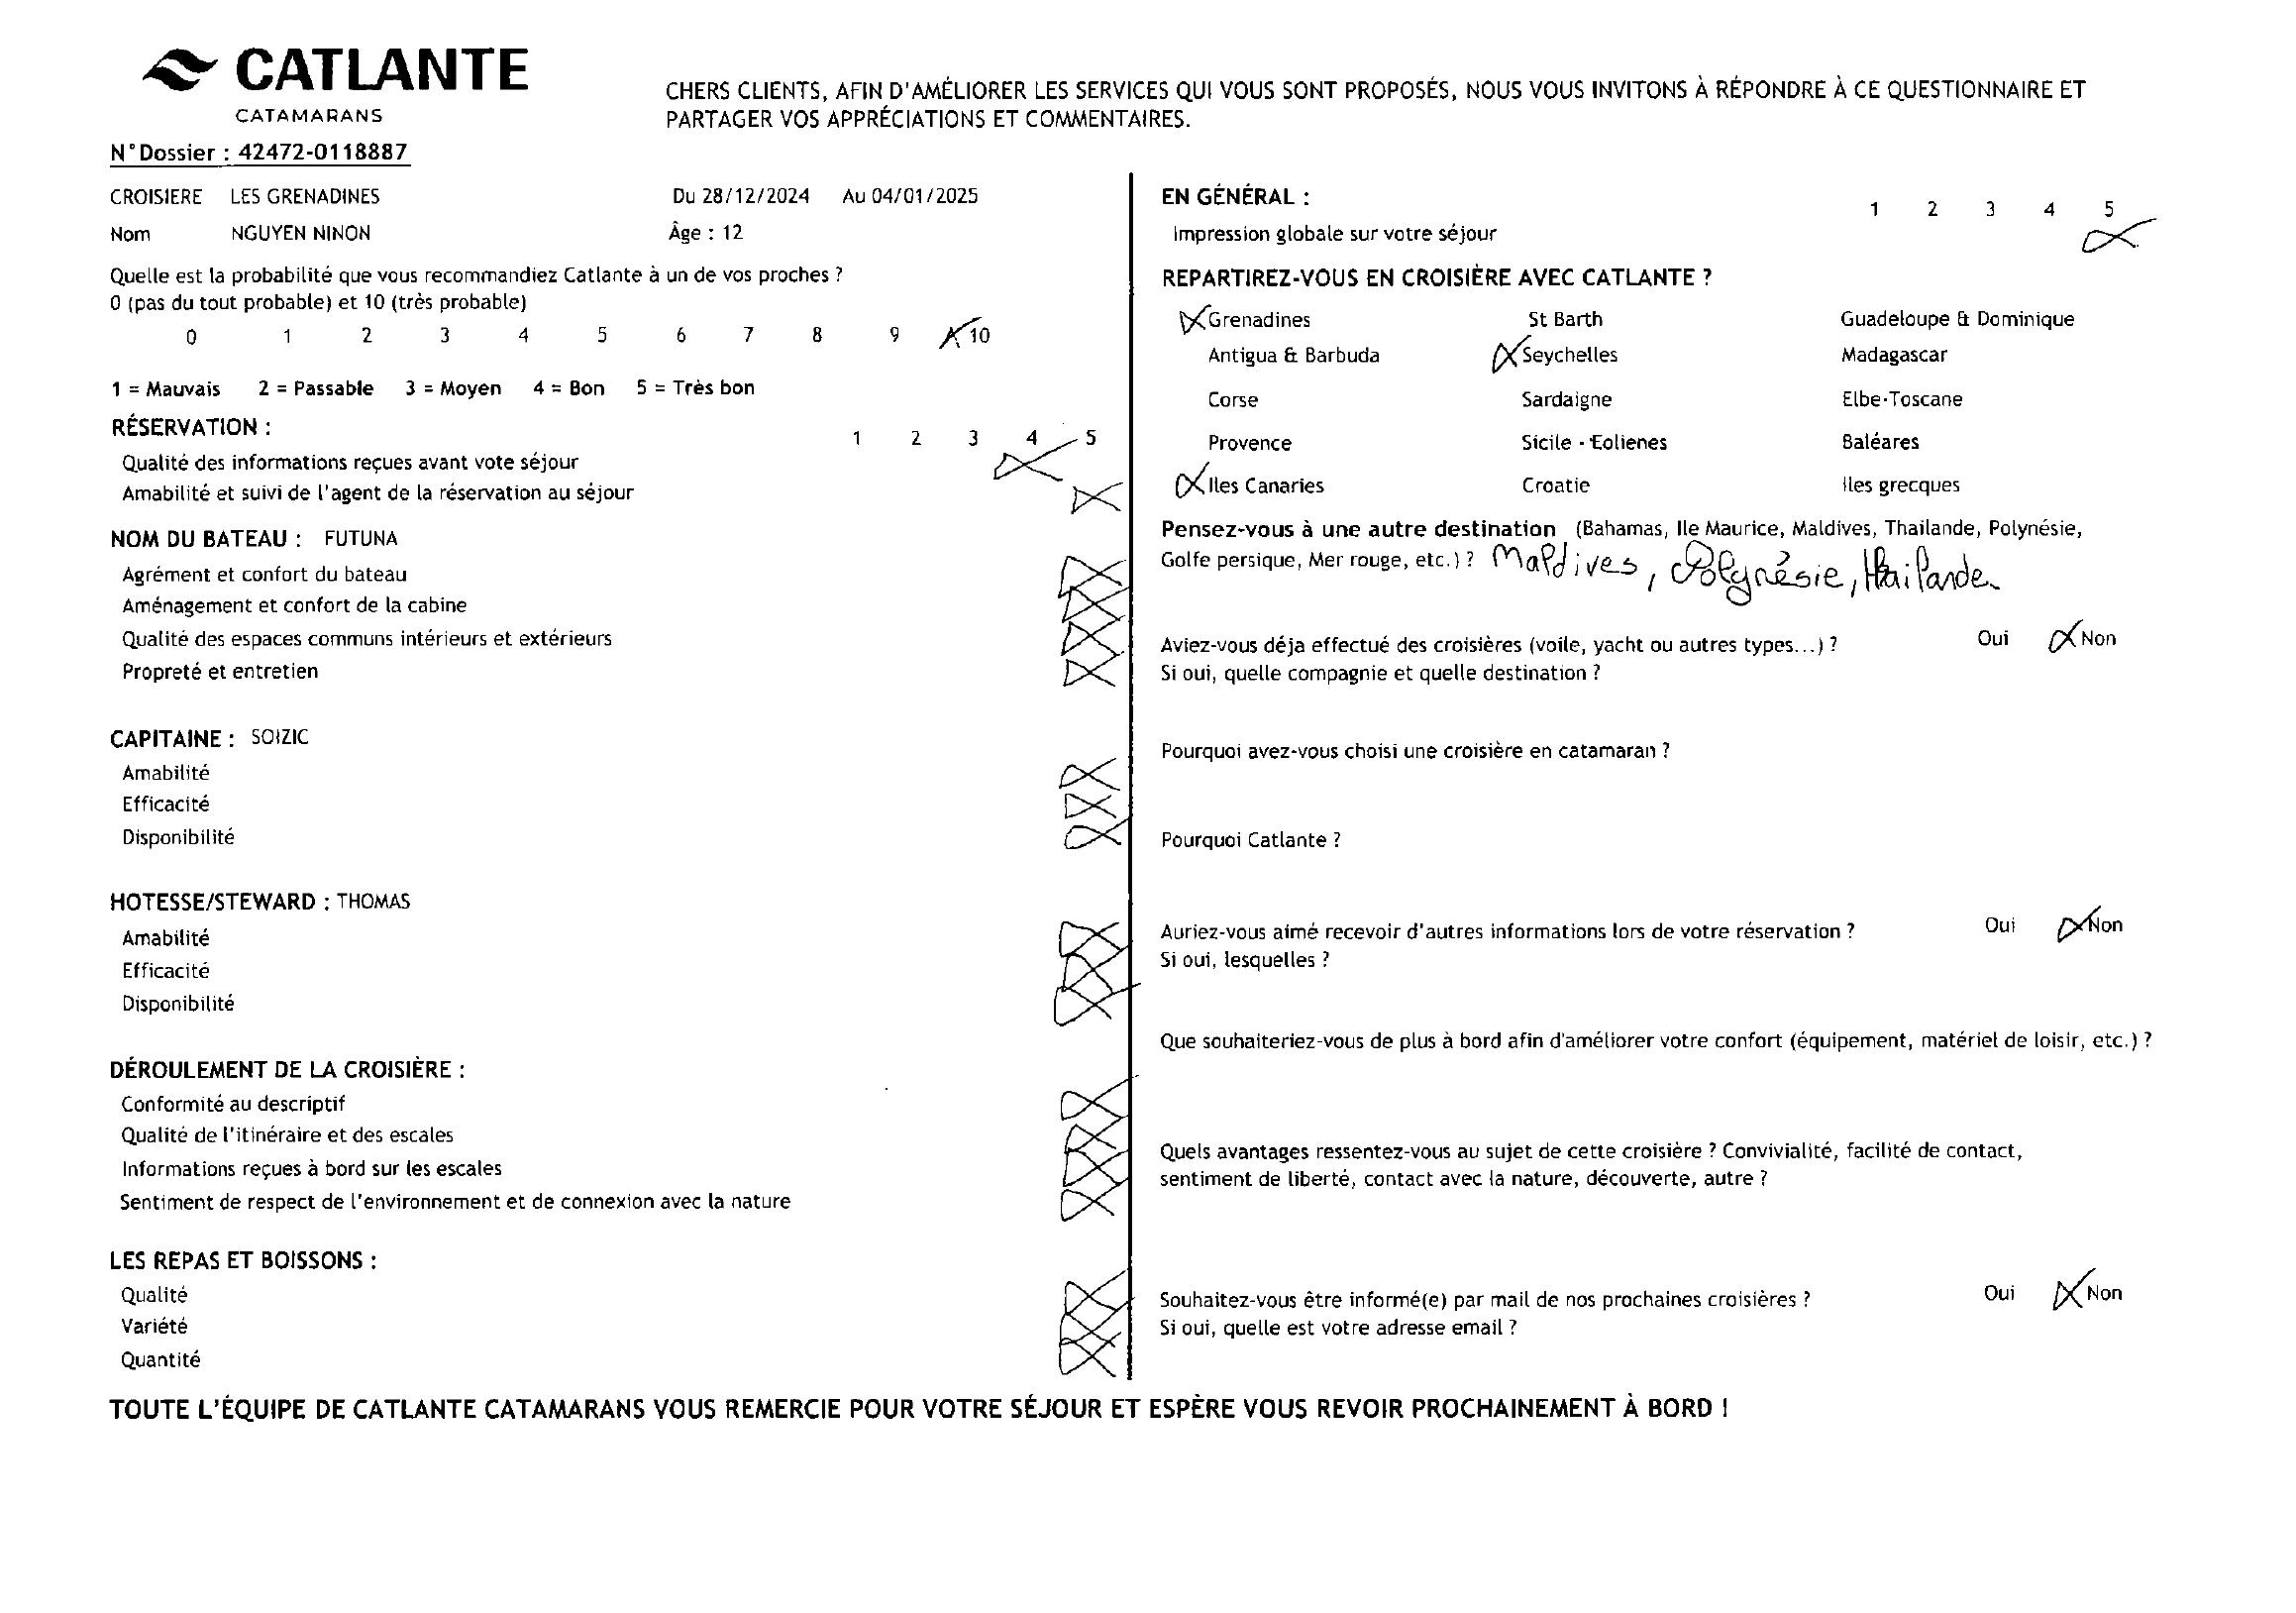 CATLANTE
CATAMARANS
CHERS CLIENTS, AFIN D'AMÉLIORER LES SERVICES QUI VOUS SONT PROPOSÉS, NOUS VOUS INVITONS À RÉPONDRE À CE QUESTIONNAIRE ET
PARTAGER VOS APPRÉCIATIONS ET COMMENTAIRES.
N°Dossier : 42472-0118887
CROISIERE LES GRENADINES Du 28/12/2024 Au 04/01/2025
Nom NGUYEN NINON Âge : 12
Quelle est la probabilité que vous recommandiez Catlante à un de vos proches ?
0 (pas du tout probable) et 10 (très probable)
0 1 2 3 4 5 6 7 8 9 10
1 = Mauvais 2 = Passable 3 = Moyen 4 = Bon 5 = Très bon
RÉSERVATION :
1 2 3 4 5
Qualité des informations reçues avant vote séjour
Amabilité et suivi de l'agent de la réservation au séjour
NOM DU BATEAU : FUTUNA
Agrément et confort du bateau
Aménagement et confort de la cabine
Qualité des espaces communs intérieurs et extérieurs
Propreté et entretien
CAPITAINE : SOIZIC
Amabilité
Efficacité
Disponibilité
HOTESSE/STEWARD : THOMAS
Amabilité
Efficacité
Disponibilité
DÉROULEMENT DE LA CROISIÈRE :
Conformité au descriptif
Qualité de l'itinéraire et des escales
Informations reçues à bord sur les escales
Sentiment de respect de l'environnement et de connexion avec la nature
LES REPAS ET BOISSONS :
Qualité
Variété
Quantité
EN GÉNÉRAL :
1 2 3 4 5
Impression globale sur votre séjour
REPARTIREZ-VOUS EN CROISIÈRE AVEC CATLANTE ?
Grenadines St Barth Guadeloupe & Dominique
Antigua & Barbuda Seychelles Madagascar
Corse Sardaigne Elbe-Toscane
Provence Sicile - Eolienes Baléares
Iles Canaries Croatie Iles grecques
Pensez-vous à une autre destination (Bahamas, Ile Maurice, Maldives, Thailande, Polynésie,
Golfe persique, Mer rouge, etc.) ? Maldives, Polynésie, thaïlande
Aviez-vous déja effectué des croisières (voile, yacht ou autres types...) ? Oui Non
Si oui, quelle compagnie et quelle destination ?
Pourquoi avez-vous choisi une croisière en catamaran ?
Pourquoi Catlante ?
Auriez-vous aimé recevoir d'autres informations lors de votre réservation ? Oui Non
Si oui, lesquelles ?
Que souhaiteriez-vous de plus à bord afin d'améliorer votre confort (équipement, matériel de loisir, etc.) ?
Quels avantages ressentez-vous au sujet de cette croisière ? Convivialité, facilité de contact,
sentiment de liberté, contact avec la nature, découverte, autre ?
Souhaitez-vous être informé(e) par mail de nos prochaines croisières ? Oui Non
Si oui, quelle est votre adresse email ?
TOUTE L'ÉQUIPE DE CATLANTE CATAMARANS VOUS REMERCIE POUR VOTRE SÉJOUR ET ESPÈRE VOUS REVOIR PROCHAINEMENT À BORD !